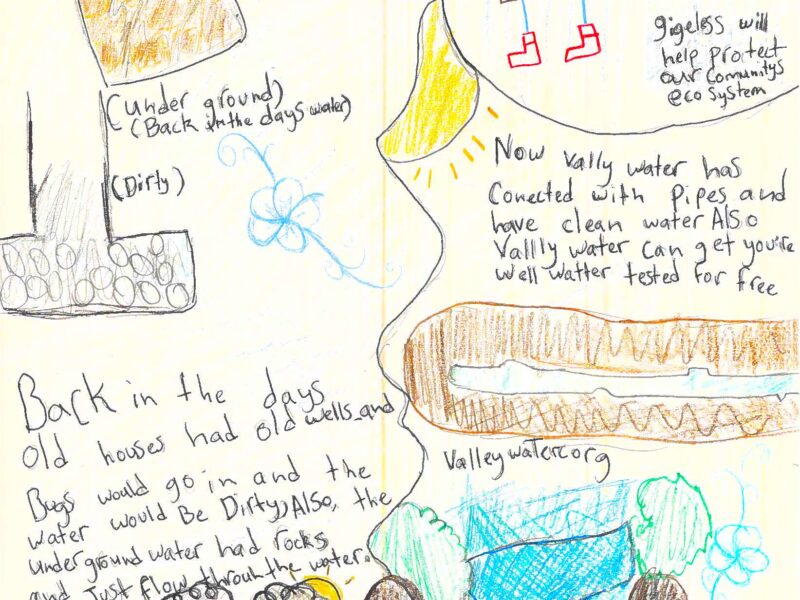 (under ground)
(Back in the days water)
(Dirty)
Back in the days
old houses had old wells and
Bugs would go in and the
water would Be Dirty, Also, the
underground water had rocks
and Just flow throuh the water.
gigeless will
help protect
our Comunitys
eco system
Now Vally water has
Conected with pipes and
have clean water Also
Vallly water can get you're
well watter tested for free
Valleywater.org